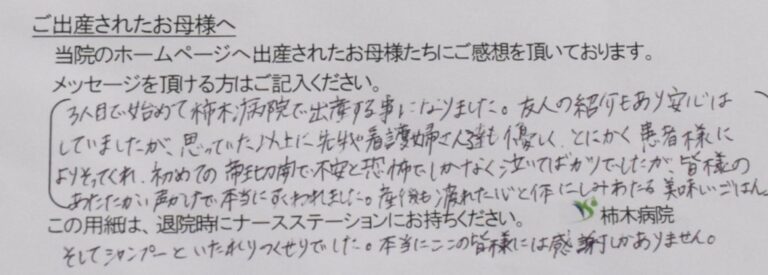 ご出産されたお母様へ
当院のホームページへ出産されたお母様たちにご感想を頂いております。
メッセージを頂ける方はご記入ください。
3人目で始めて柿木病院で出産する事になりました。友人の紹介もあり安心は
していましたが、思っていた以上に先生や看護婦さん達も優しく、とにかく患者様に
よりそってくれ、初めての帝王切開で不安と恐怖でしかなく泣いてばかりでしたが、皆様の
あたたかい声かけで本当にすくわれました。産後も疲れた心と体にしみわたる美味しいごはん。
この用紙は、退院時にナースステーションにお持ちください。 柿木病院
そしてシャンプーといたれりつくせりでした。本当にここの皆様には感謝しかありません。